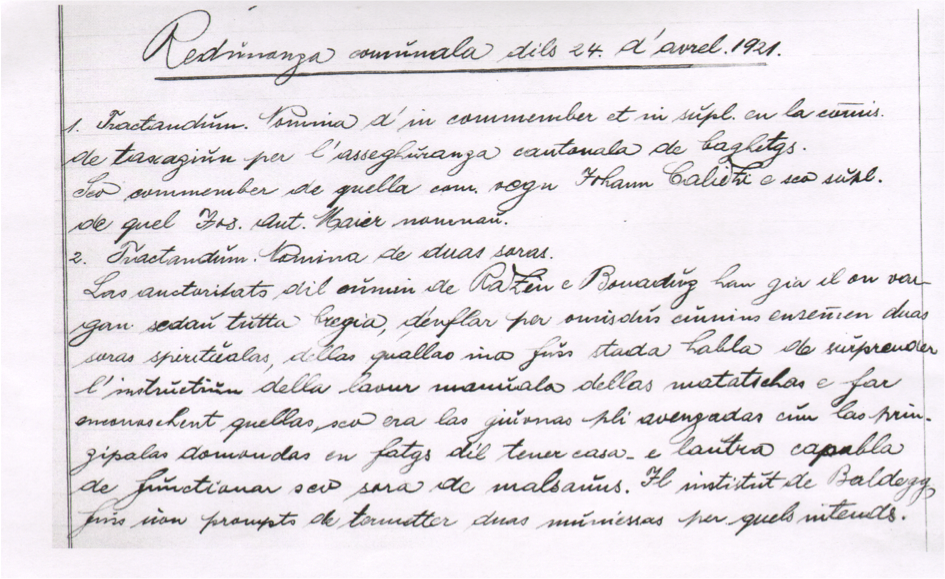 Redünanza comünala dils 24. d'avrel. 1921.
1. Tractandüm. Nomina d'in commember et in süpl. en la com̄is.
de taxagiün per l'asseghüranza cantonala de baghetgs.
Sco commember de quella com. vegn Johann Caliezi e sco süpl.
de quel Jos. Ant. Maier nomnaü.
2. Tractandüm. Nomina de duas soras.
Las auctoritats dil cümin de Razen e Bonadüz han gia il on var-
gau sedaü tütta bregia, d'enflar per omisdüs cümins ensem̄en duas
soras spiritüalas, dellas quallas ina füss stada habla de sürprender
l'instructiün della lavur manüala dellas matatschas e far
enconoschent quellas, sco era las giüvnas pli avanzadas cün las prin-
zipalas domondas en fatgs dil tener casa - e lautra capabla
de functionar sco sora de malsaüns. Il institut de Baldegg
füss üon prompts de termetter duas müniessas per quels intends.